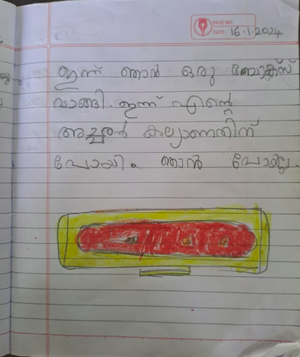 PAGE NO:
DATE: 16-1-2024
ഇന്ന് ഞാൻ ഒരു ബോക്സ്
വാങ്ങി. ഇന്ന് എന്റെ
അച്ഛൻ കല്യാണതിന്
പോയി. ഞാൻ പോയില്ല.